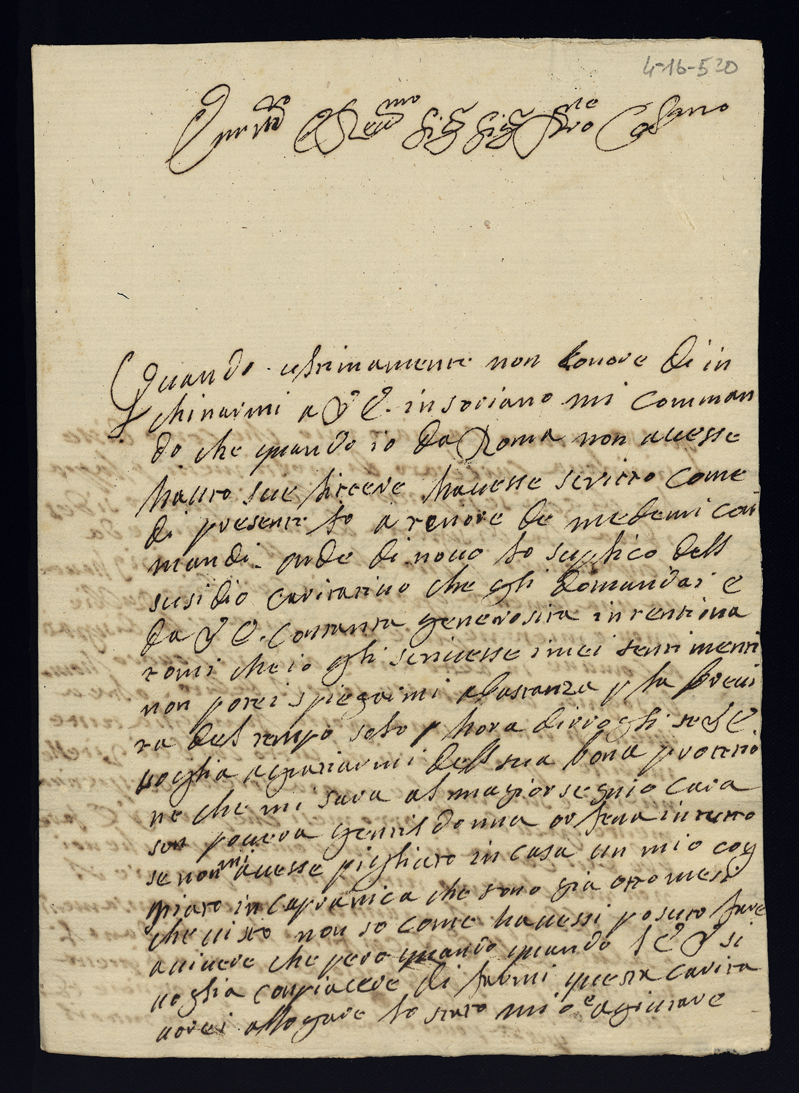 4-16-520
Sig.r Sig.r
Quando ultimamente non honore di in
chinarmi a V E. in soriano mi comman
do che quando io da Roma non avesse
hauto sue littere havesse scritto come
di presente fo a tenore de medemi com
mandi. onde di novo lo suplico dell
susidio caritativo che gli domandai e
da V E. con tanta generosita intentiona
tomi che io gli scrivesse i miei sentimenti
non potei spiegarmi abastanza p la brevi
ta del tempo solo p hora dirrogli se V E
voglia agratiarmi dell sua bona protetio
ne che mi sara al magior segnio cara
son povera gentil donna orfana in tutto
se non mi avesse pigliato in casa un mio cog
niato in capranica che sono gia otto mesi
che visto non so come havessi posuto fare
a vivere che pero quando quando l E V si
voglia conpiacere di farmi questa carita
vorei allogare lo stato mio e agiutare